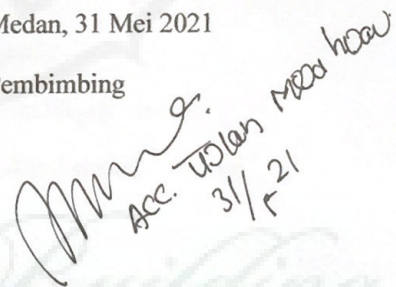 Medan, 31 Mei 2021
Pembimbing
Acc. Ujian Meja hijau
31/5 21